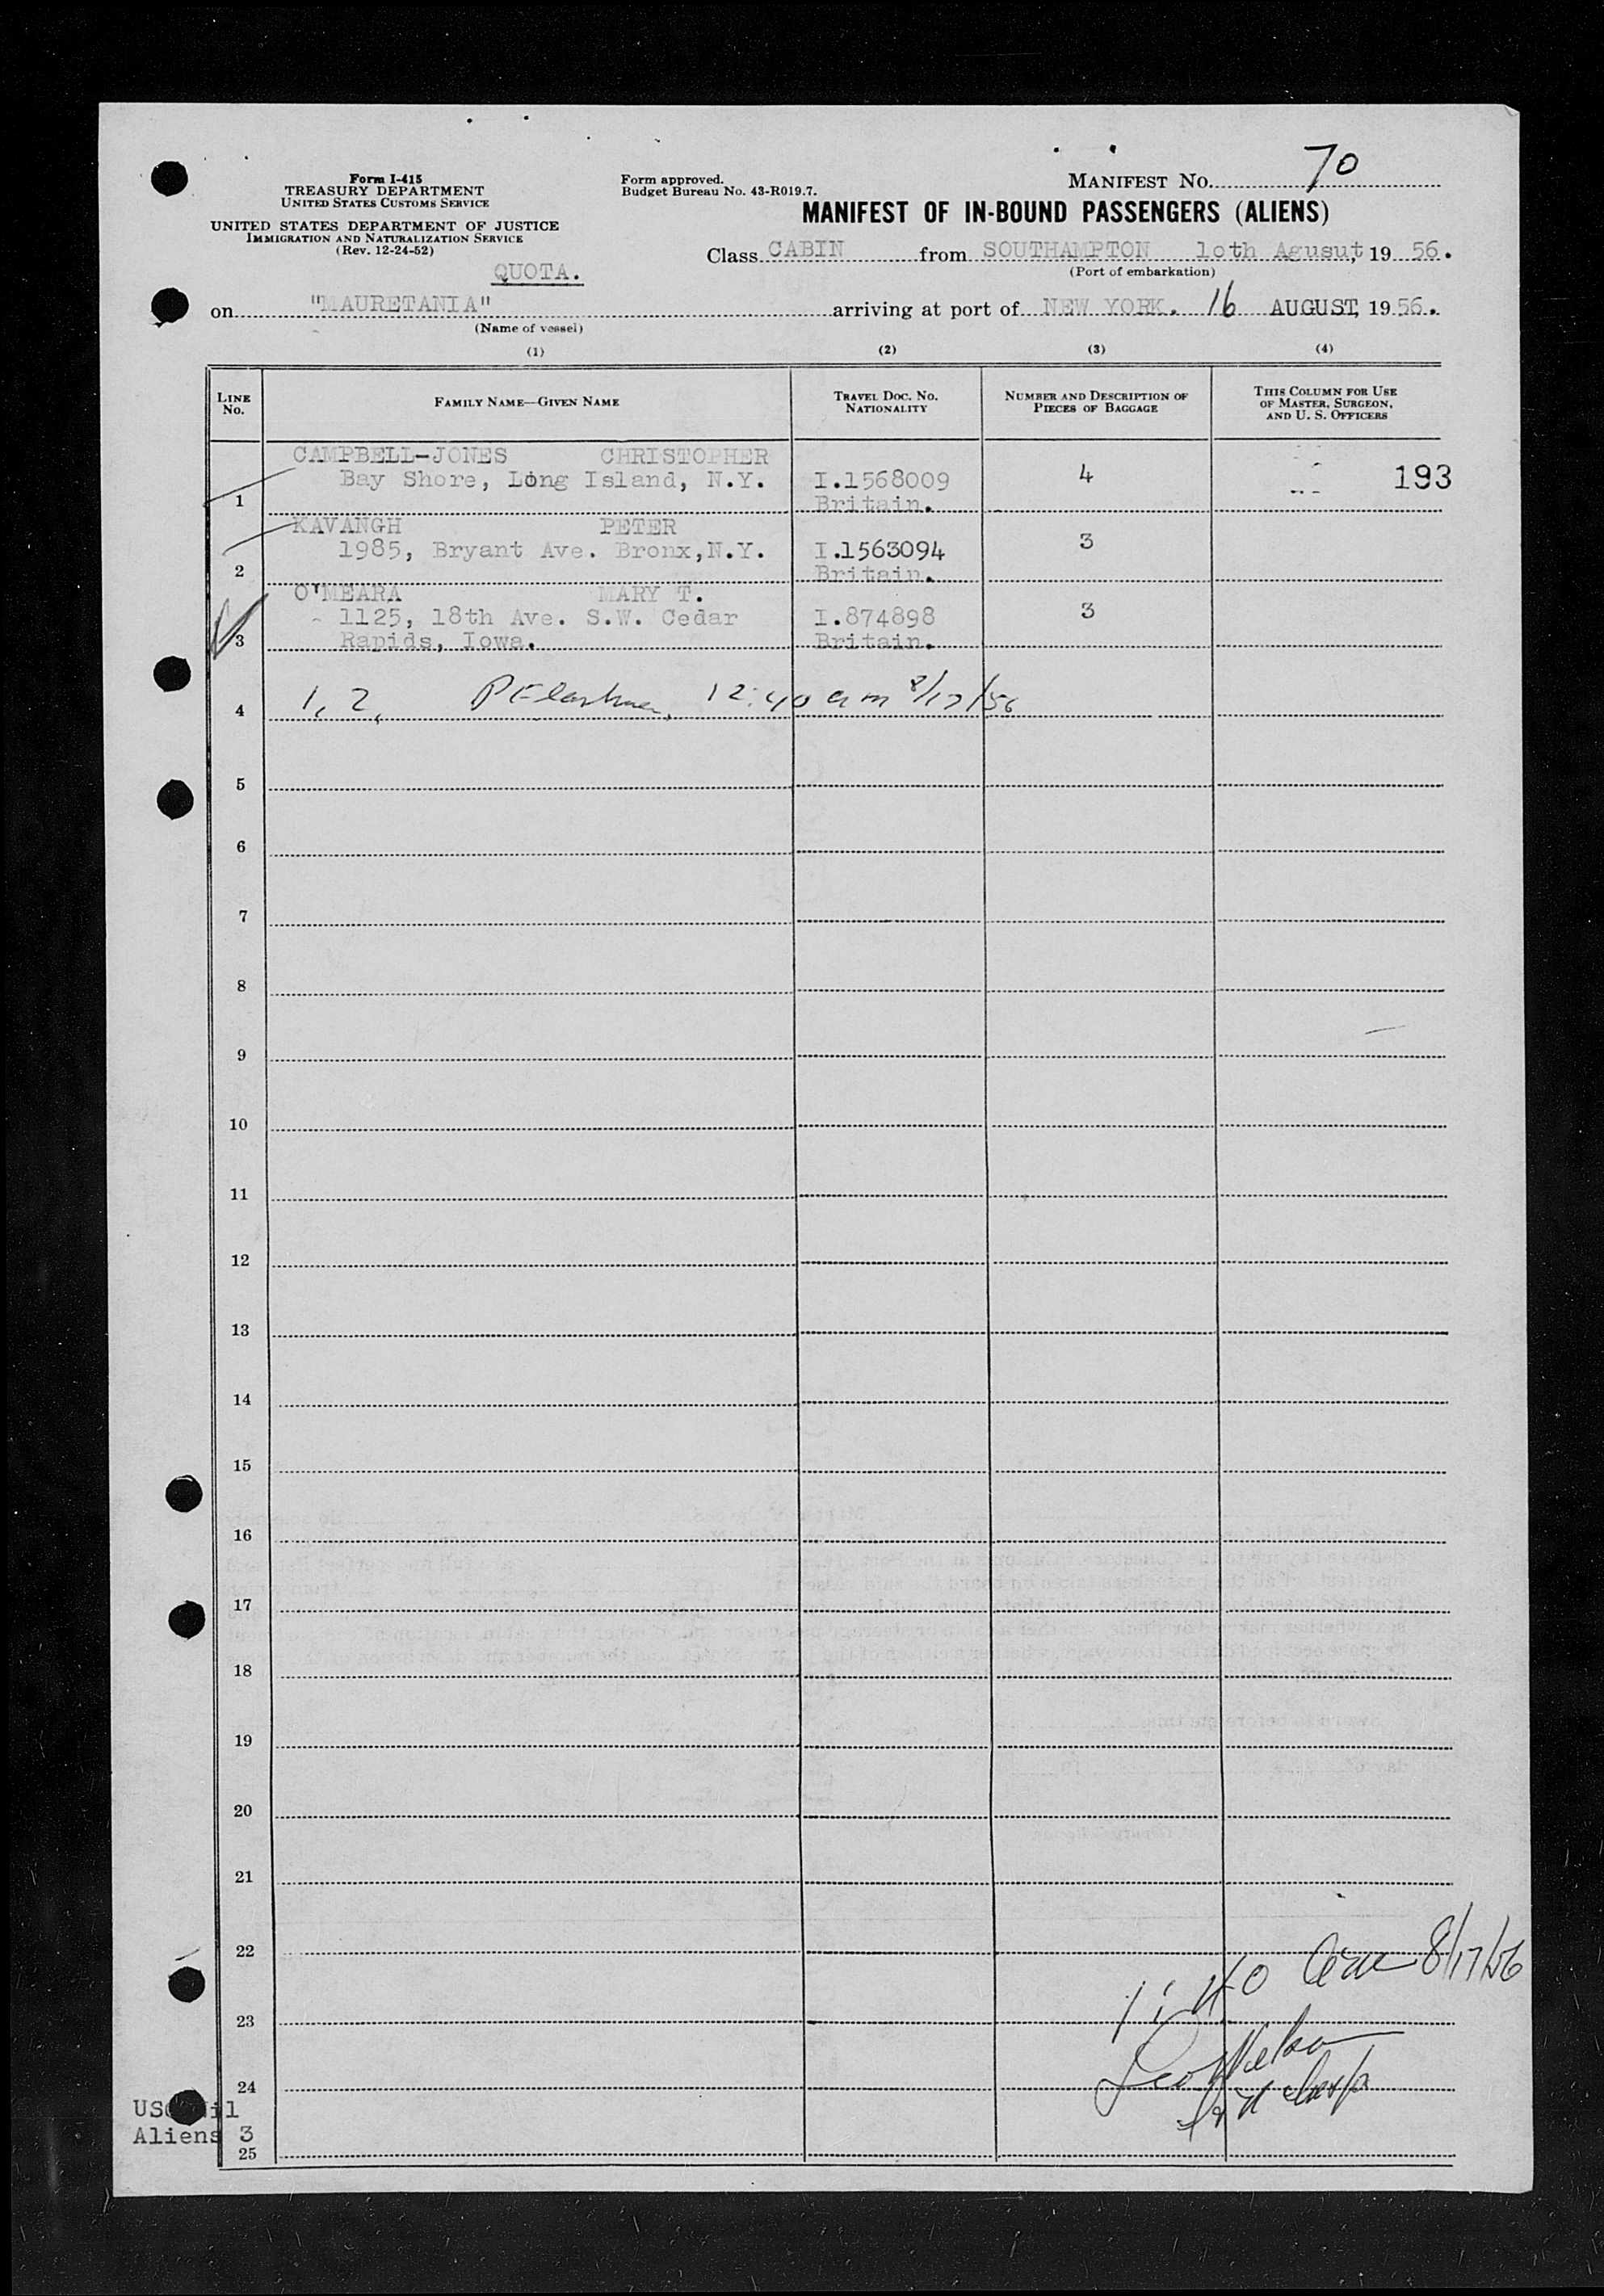 Form I-415
TREASURY DEPARTMENT
UNITED STATES CUSTOMS SERVICE
UNITED STATES DEPARTMENT OF JUSTICE
IMMIGRATION AND NATURALIZATION SERVICE
(Rev. 12-24-52)
Form approved.
Budget Bureau No. 43-R019.7.
MANIFEST NO. 70
MANIFEST OF IN-BOUND PASSENGERS (ALIENS)
Class CABIN from SOUTHAMPTON 10th Agusut, 19 56.
(Port of embarkation)
QUOTA.
on "MAURETANIA" arriving at port of NEW YORK. 16 AUGUST, 19 56.
(Name of vessel)
(1) (2) (3) (4)
LINE NO.
FAMILY NAME—GIVEN NAME
TRAVEL DOC. NO. NATIONALITY
NUMBER AND DESCRIPTION OF PIECES OF BAGGAGE
THIS COLUMN FOR USE OF MASTER, SURGEON, AND U. S. OFFICERS
CAMPBELL-JONES CHRISTOPHER
Bay Shore, Long Island, N.Y. I.1568009 4 193
1 Britain.
KAVANGH PETER
1985, Bryant Ave. Bronx,N.Y. I.1563094 3
2 Britain.
O'MEARA MARY T.
1125, 18th Ave. S.W. Cedar I.874898 3
3 Rapids, Iowa. Britain.
4 1, 2, 12:40 am 8/17/56
5
6
7
8
9
10
11
12
13
14
15
16
17
18
19
20
21
22
1:40 am 8/17/56
23
24
USC Nil
Aliens 3
25